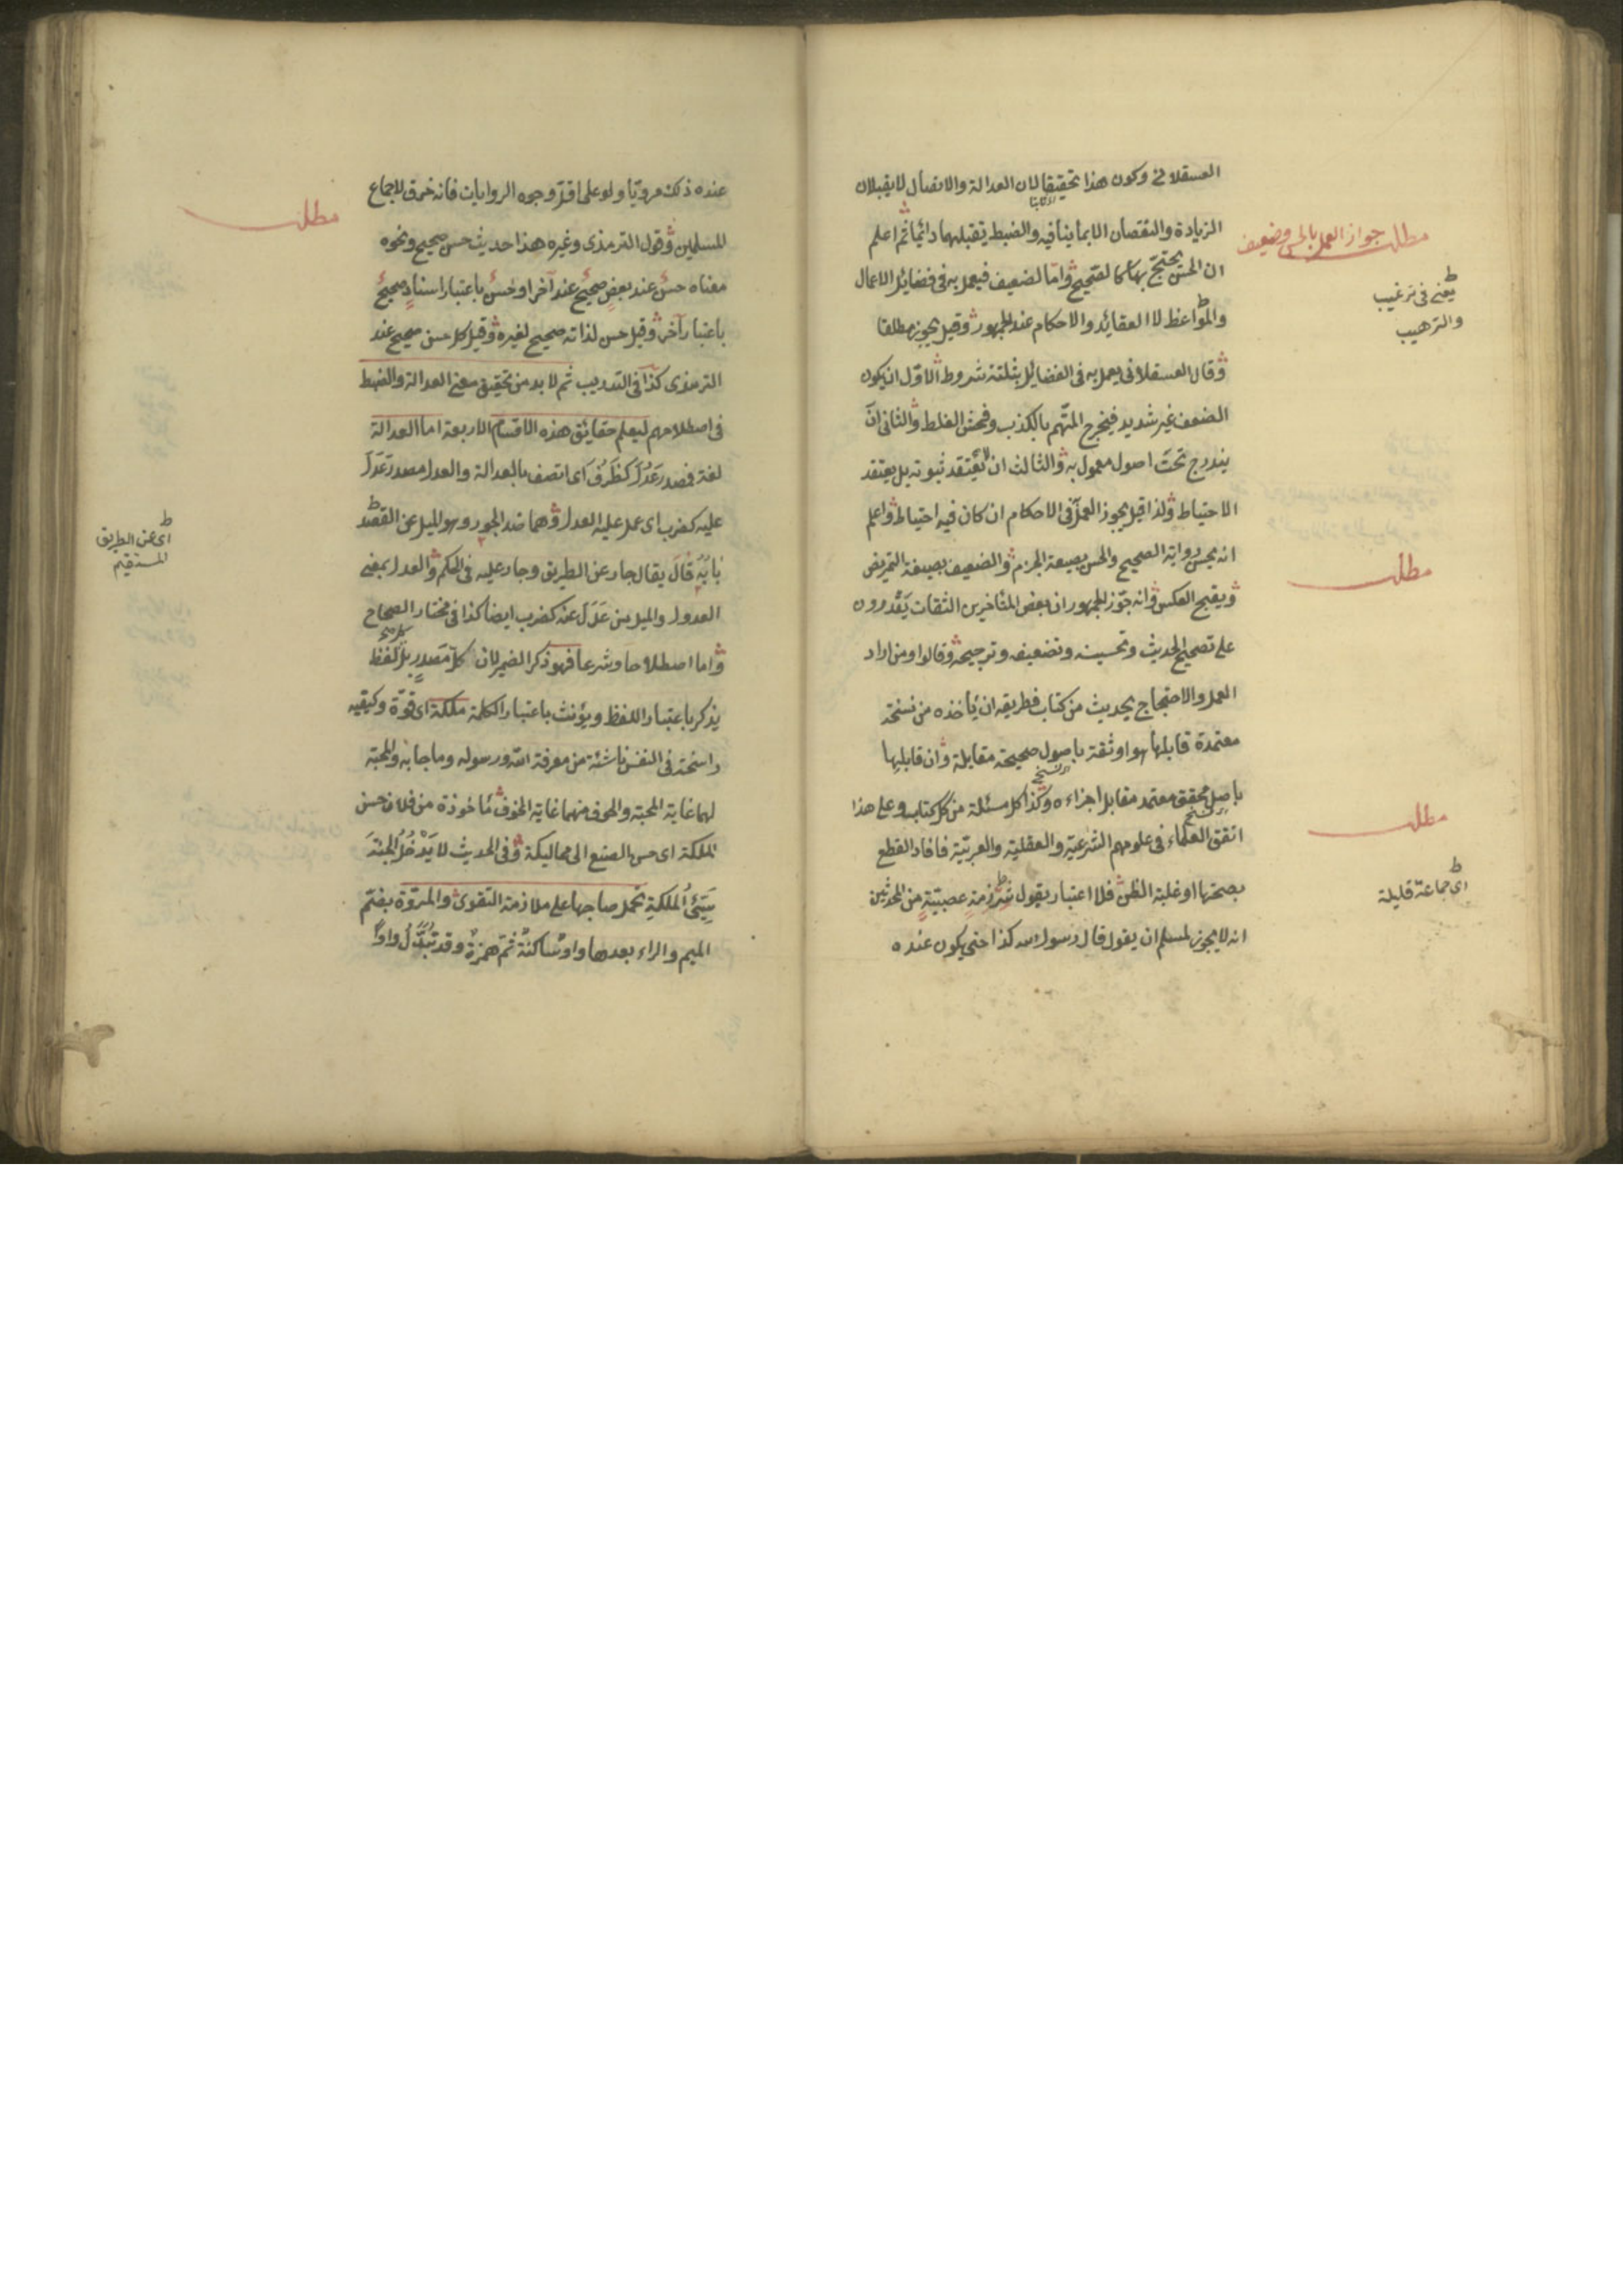 العسقلاني وكون هذا تحقيقا لان العدالة والاتصال لا يقبلان
الزيادة والنقصان الا بما ينافيه والضبط يقبلهما دائما ثم اعلم
ان الحسن يحتج بها كالصحيح واما الضعيف فيعمل به في فضائل الاعمال
والمواعظ لا العقائد والاحكام عند الجمهور وقيل يجوز مطلقا
وقال العسقلاني يعمل به في الفضائل بثلثة شروط الاول ان يكون
الضعف غير شديد فيخرج المتهم بالكذب وفحش الغلط والثاني ان
يندرج تحت اصول معمول به والثالث ان لا يعتقد ثبوته بل يعتقد
الاحتياط ولذا قيل يجوز العمل في الاحكام ان كان فيه احتياط واعلم
انه يحسن رواية الصحيح والحسن بصيغة الجزم والضعيف بصيغة التمريض
ويقبح العكس وانه جوز الجمهور ان بعض المتأخرين الثقات يَقْدرون
على تصحيح الحديث وتحسينه وتضعيفه وترجيحه وقالوا ومن اراد
العمل والاحتجاج بحديث من كتاب فطريقه ان يأخذه من نسخة
معتمدة قابلها هو او ثقة باصول صحيحة مقابلة وان قابلها
باصل محقق معتمد مقابل اجزاءه وكذا كل مسئلة من كل كتاب وعلى هذا
اتفق العلماء في علومهم الشرعية والعقلية والعربية فافاد القطع
بصحتها او غلبة الظن فلا اعتبار بقول شرذمة عصبيّةٍ من المحدثين
انه لا يجوز لمسلم ان يقول قال رسول الله كذا حتى يكون عنده
مطلب جواز العمل بالحسن وضعيف
يعني في ترغيب
والترهيب
مطلب
مطلب
اى جماعة قليلة
عنده ذلك مرويّا ولو على اقلّ وجوه الروايات فانه خرق لاجماع
المسلمين وقول الترمذى وغيره هذا حديث حسن صحيح ونحوه
معناه حسنٌ عند بعضٍ صحيحٌ عند آخر او حسنٌ باعتبار اسنادٍ صحيحٌ
باعتبار آخر وقيل حسن لذاته صحيح لغيره وقيل كل حسن صحيح عند
الترمذى كذا في التدريب ثم لا بد من تحقيق معنى العدالة والضبط
في اصطلاحهم ليعلم حقائق هذه الاقسام الاربعة اما العدالة
لغة فمصدر عَدُلَ كَظَرُفَ اى اتصف بالعدالة والعدل مصدر عَدَلَ
عليه كضرب اى عمل عليه العدل وهما ضد الجور وهو الميل عن القصد
بابُهُ قالَ يقال جار عن الطريق وجار عليه في الحكم والعدل بمعنى
العدول والميل من عَدَلَ عنه كضرب ايضا كذا في مختار الصحاح
واما اصطلاحا وشرعا فهو ذكر الضمير لان كلّ مَصدرٍ بل لفظ
يذكر باعتبار اللفظ ويؤنث باعتبار الكلمة ملكة اى قوّة وكيفيه
راسخة في النفس ناشئة من معرفة الله ورسوله وما جا به والمحبة
لهما غاية المحبة والخوف منهما غاية الخوف مأخوذة من فلان حسن
الملكة اى حسن الصنيع الى مماليكه وفي الحديث لا يَدْخُلُ الجنّةَ
سَيِّئُ الملكةِ تحمل صاحبها على ملازمة التقوى والمروّة بضم
الميم والراء بعدها واو ساكنةٌ ثم همزةٌ وقد تُبَدَّلُ واواً
مطلب
اى عن الطريق
المستقيم